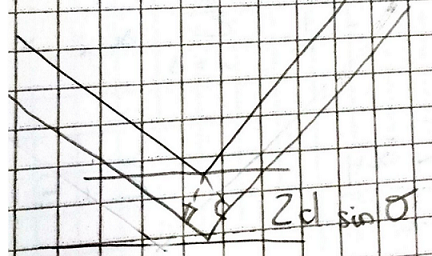 2d sin σ